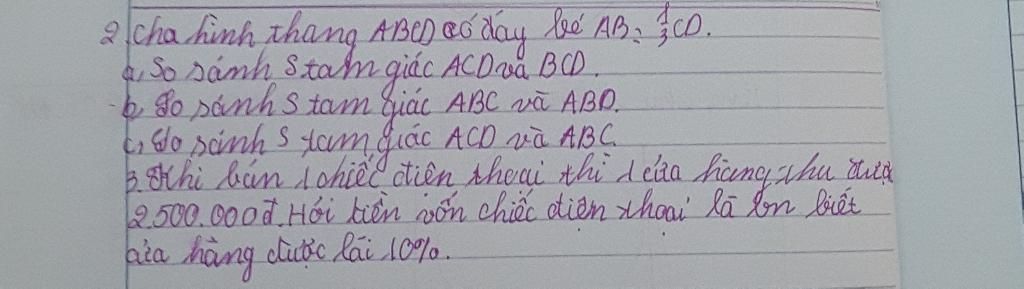 2, Cho hình thang ABCD có đáy bé AB = 1/3 CD.
a, So sánh S tam giác ACD và BCD.
b, So sánh S tam giác ABC và ABD.
c, So sánh S tam giác ACD và ABC.
3. Khi bán 1 chiếc điện thoại thì 1 cửa hàng thu được
2.500.000đ. Hỏi tiền vốn chiếc điện thoại là bn biết
cửa hàng được lãi 10%.